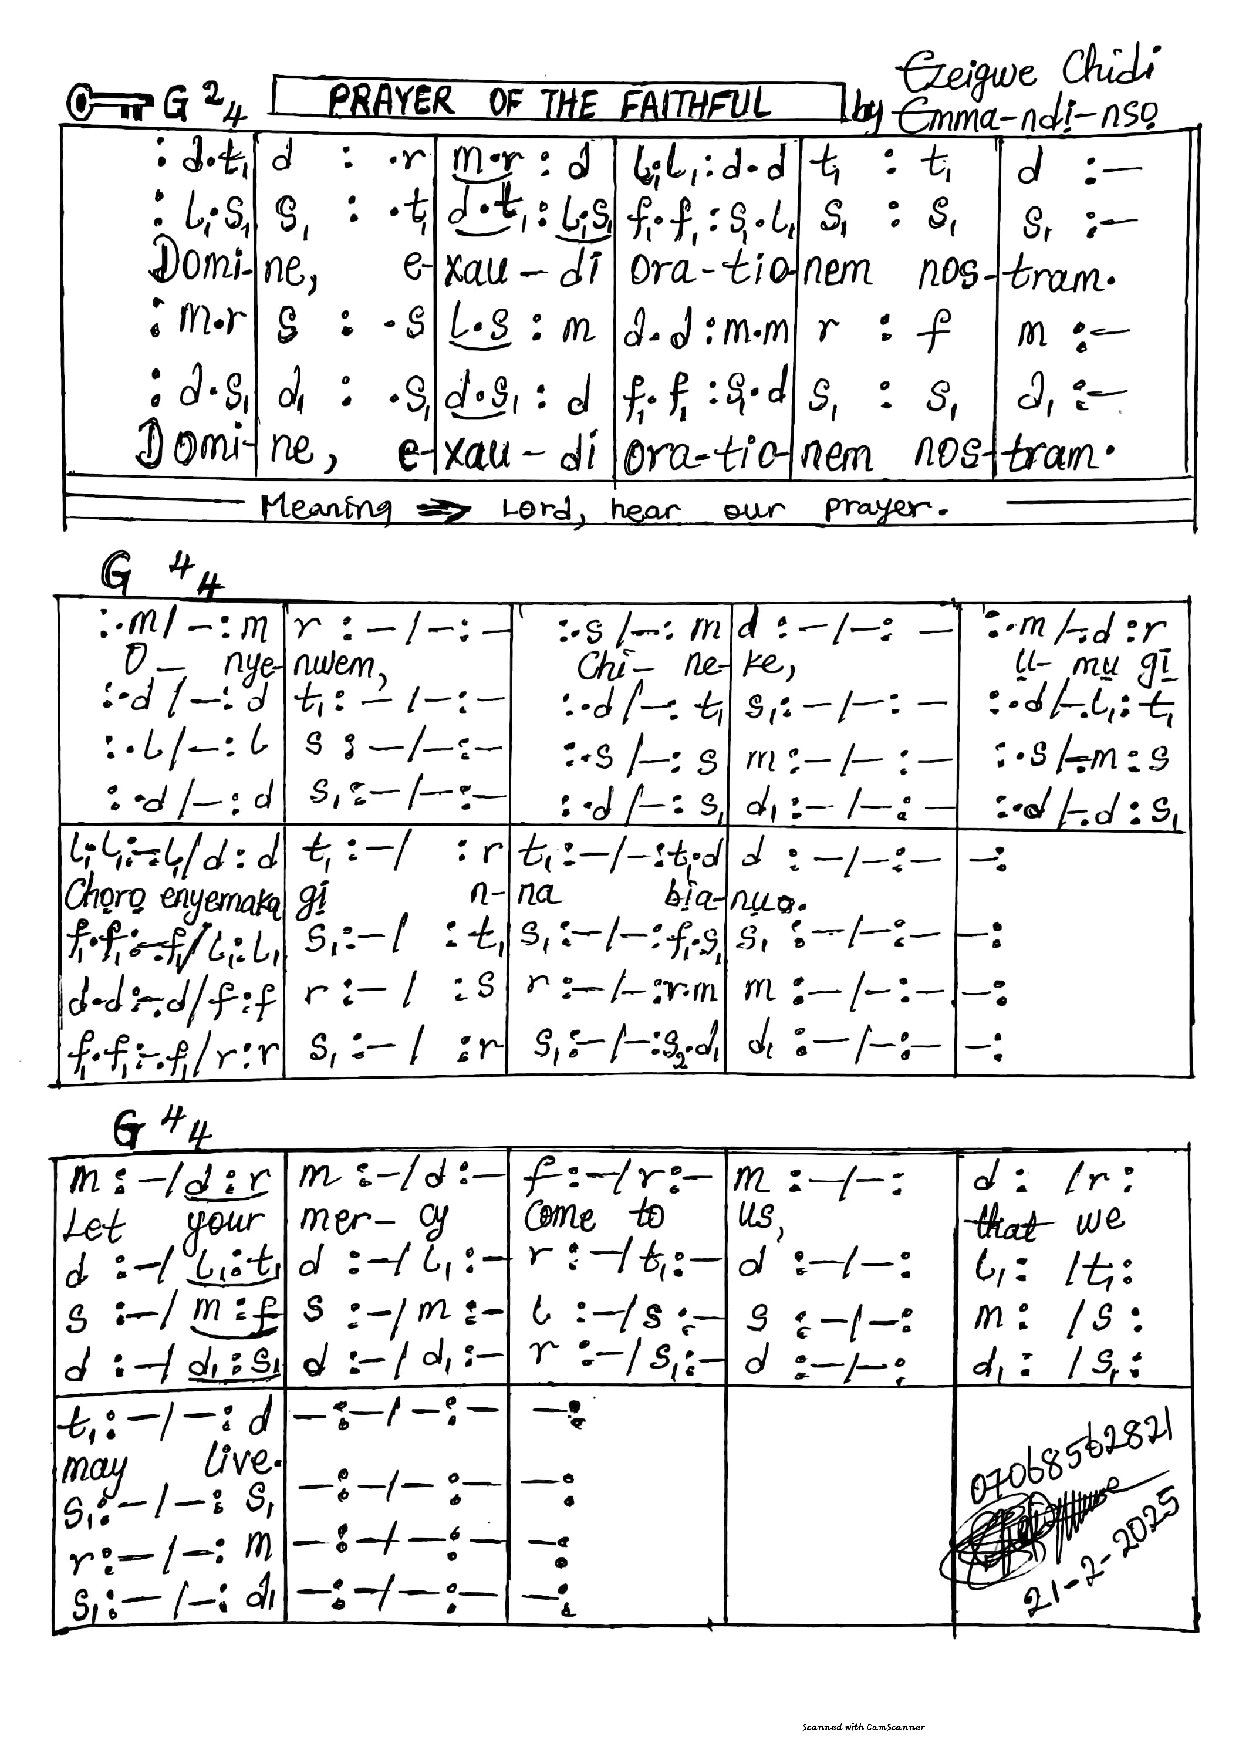 G 2/4 PRAYER OF THE FAITHFUL by Ezeigwe Chidi Emma-ndi-nsọ
: d.t₁ | d : .r | m.r : d | l₁.l₁ : d.d | t₁ : t₁ | d :—
: l₁.s₁ | s₁ : .t₁ | d.t₁ : l₁.s₁ | f₁.f₁ : s₁.l₁ | s₁ : s₁ | s₁ :—
Domi-ne, e-xau-di ora-tio-nem nos-tram.
: m.r | s : .s | l.s : m | d.d : m.m | r : f | m :—
: d.s₁ | d₁ : .s₁ | d.s₁ : d | f₁.f₁ : s₁.d | s₁ : s₁ | d₁ :—
Domi-ne, e-xau-di ora-tio-nem nos-tram.
Meaning ⇒ Lord, hear our prayer.
G 4/4
:.m/—:m | r :—/—:— | :.s/—:m | d :—/—:— | :.m/—.d:r
O— nye-nwem, Chi— ne-ke, u- mu gị
:.d/—:d | t₁:—/—:— | :.d/—:t₁ | s₁:—/—:— | :.d/—.l₁:t₁
:.l/—:l | s :—/—:— | :.s/—:s | m :—/—:— | :.s/—.m:s
:.d/—:d | s₁:—/—:— | :.d/—:s₁ | d₁:—/—:— | :.d/—.d:s₁
l₁.l₁:—.l₁/d:d | t₁:—/ :r | t₁:—/—:t₁.d | d :—/—:— | —:
Chọrọ enyemaka gị n-na bịa-nụọ.
f₁.f₁:—.f₁/l₁:l₁ | s₁:—/ :t₁ | s₁:—/—:f₁.s₁ | s₁:—/—:— | —:
d.d:—.d/f:f | r:—/ :s | r:—/—:r.m | m:—/—:— | —:
f₁.f₁:—.f₁/r:r | s₁:—/ :r | s₁:—/—:s₂.d₁ | d₁:—/—:— | —:
G 4/4
m:—/d:r | m:—/d:— | f:—/r:— | m:—/—: | d: /r:
Let your mer-cy come to us, that we
d:—/l₁:t₁ | d:—/l₁:— | r:—/t₁:— | d:—/—: | l₁: /t₁:
s:—/m:f | s:—/m:— | l:—/s:— | s:—/—: | m: /s:
d:—/d₁:s₁ | d:—/d₁:— | r:—/s₁:— | d:—/—: | d₁: /s₁:
t₁:—/—:d | —:—/—:— | —:
may live.
s₁:—/—:s₁ | —:—/—:— | —:
r:—/—:m | —:—/—:— | —:
s₁:—/—:d₁ | —:—/—:— | —:
07068562821
21-2-2025
Scanned with CamScanner